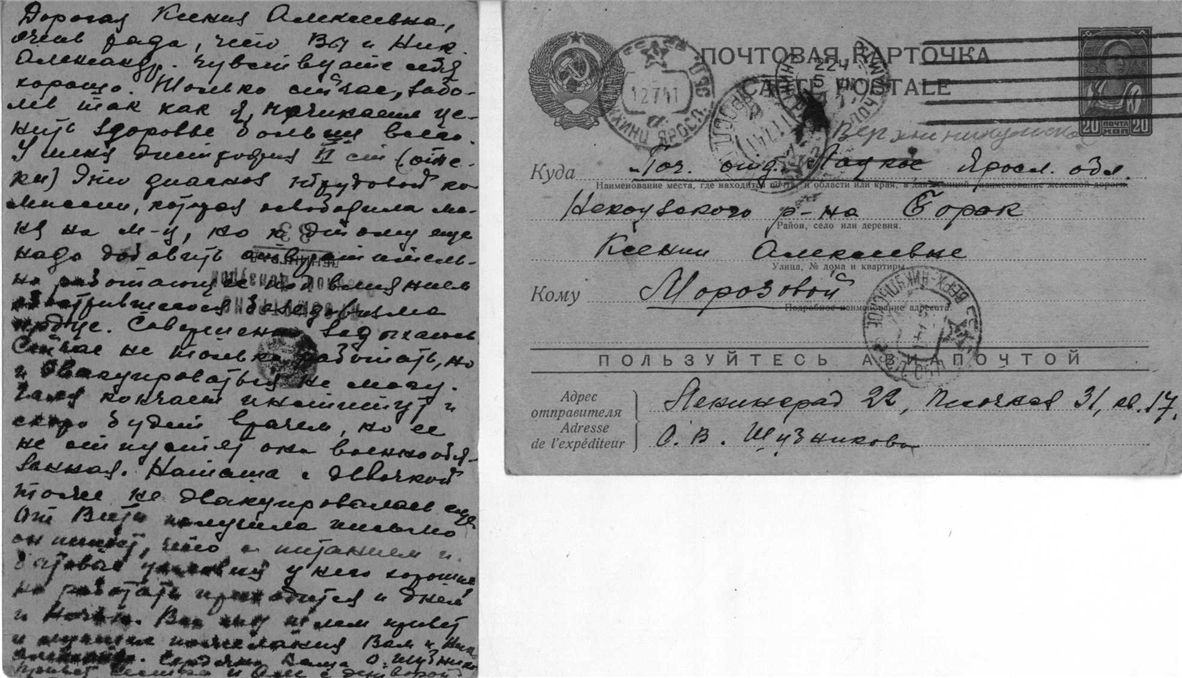 Дорогая Ксения Алексеевна,
очень рада, что Вы и Ник.
Александр. чувствуете себя
хорошо. Только сейчас, забо-
лев так как я, начинаешь це-
нить здоровье больше всего.
У меня дистрофия II ст (отё-
ки) Это диагноз трудовой ко-
миссии, которая освободила ме-
ня на м-ц, но к этому еще
надо добавить
сердце. Совершенно задыхаюсь
Сейчас не только работать, но
и эвакуироваться не могу.
Галя кончает институт и
скоро будет врачем, но ее
не отпустят она военнообя-
занная. Наташа с девочкой
тоже не эвакуировалась еще
От Вити получила письмо
он пишет, что с питанием и
бытовые условия у него хорошие,
но работать приходится и днем
и ночью. Всего привет
и лучшие пожелания Вам и Ник.
Ваша О. Шузник
привет
ПОЧТОВАЯ КАРТОЧКА
CARTE POSTALE
20 ПОЧТА 20
КОП
Верхненикульское
Куда Поч. отд. Яросл. обл.
Наименование места, где находится почта, и области или края, а для станций наименование железной дороги
Некоузского р-на Борок
Район, село или деревня.
Ксении Алексеевне
Улица, № дома и квартиры
Кому Морозовой
Подробное наименование адресата.
ПОЛЬЗУЙТЕСЬ АВИАПОЧТОЙ
Адрес
отправителя
Adresse
de l'expéditeur
Ленинград 22, Песочная 31, кв. 17.
О. В. Шузникова